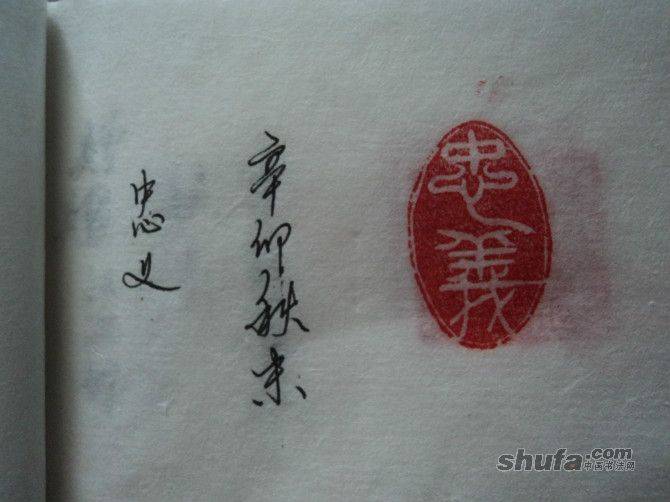 忠義
辛卯秋末
忠义
shufa.com
中国书法网